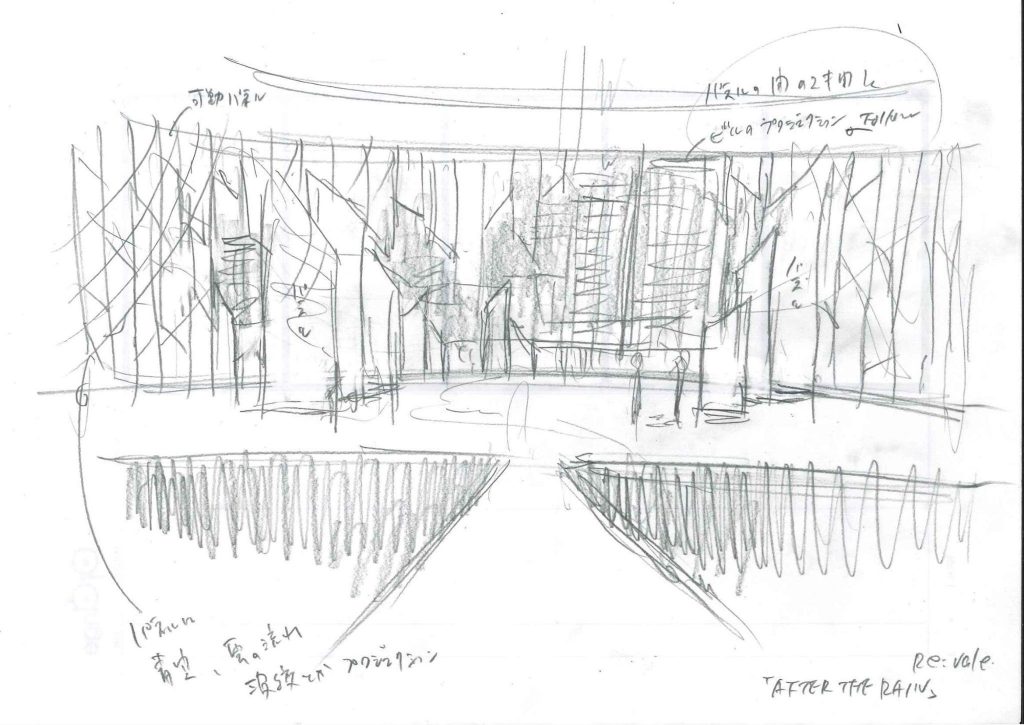 可動パネル
パネルの間の2本用に
ビルのプロジェクション
パネル
パネル
パネルに
青空、雲の流れ
波紋とか プロジェクション
Re:vale.
「AFTER THE RAIN」